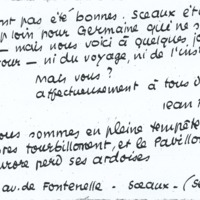 ont pas été bonnes. Sceaux éta
p loin pour Germaine qui ne s
— mais nous voici à quelques j
our — ni du voyage, ni de l'inst
Mais vous ?
affectueusement à tous d
Jean
ous sommes en pleine tempête
res tourbillonent, et le Pavillon
urore perd ses ardoises
av. de Fontenelle - Sceaux - (S